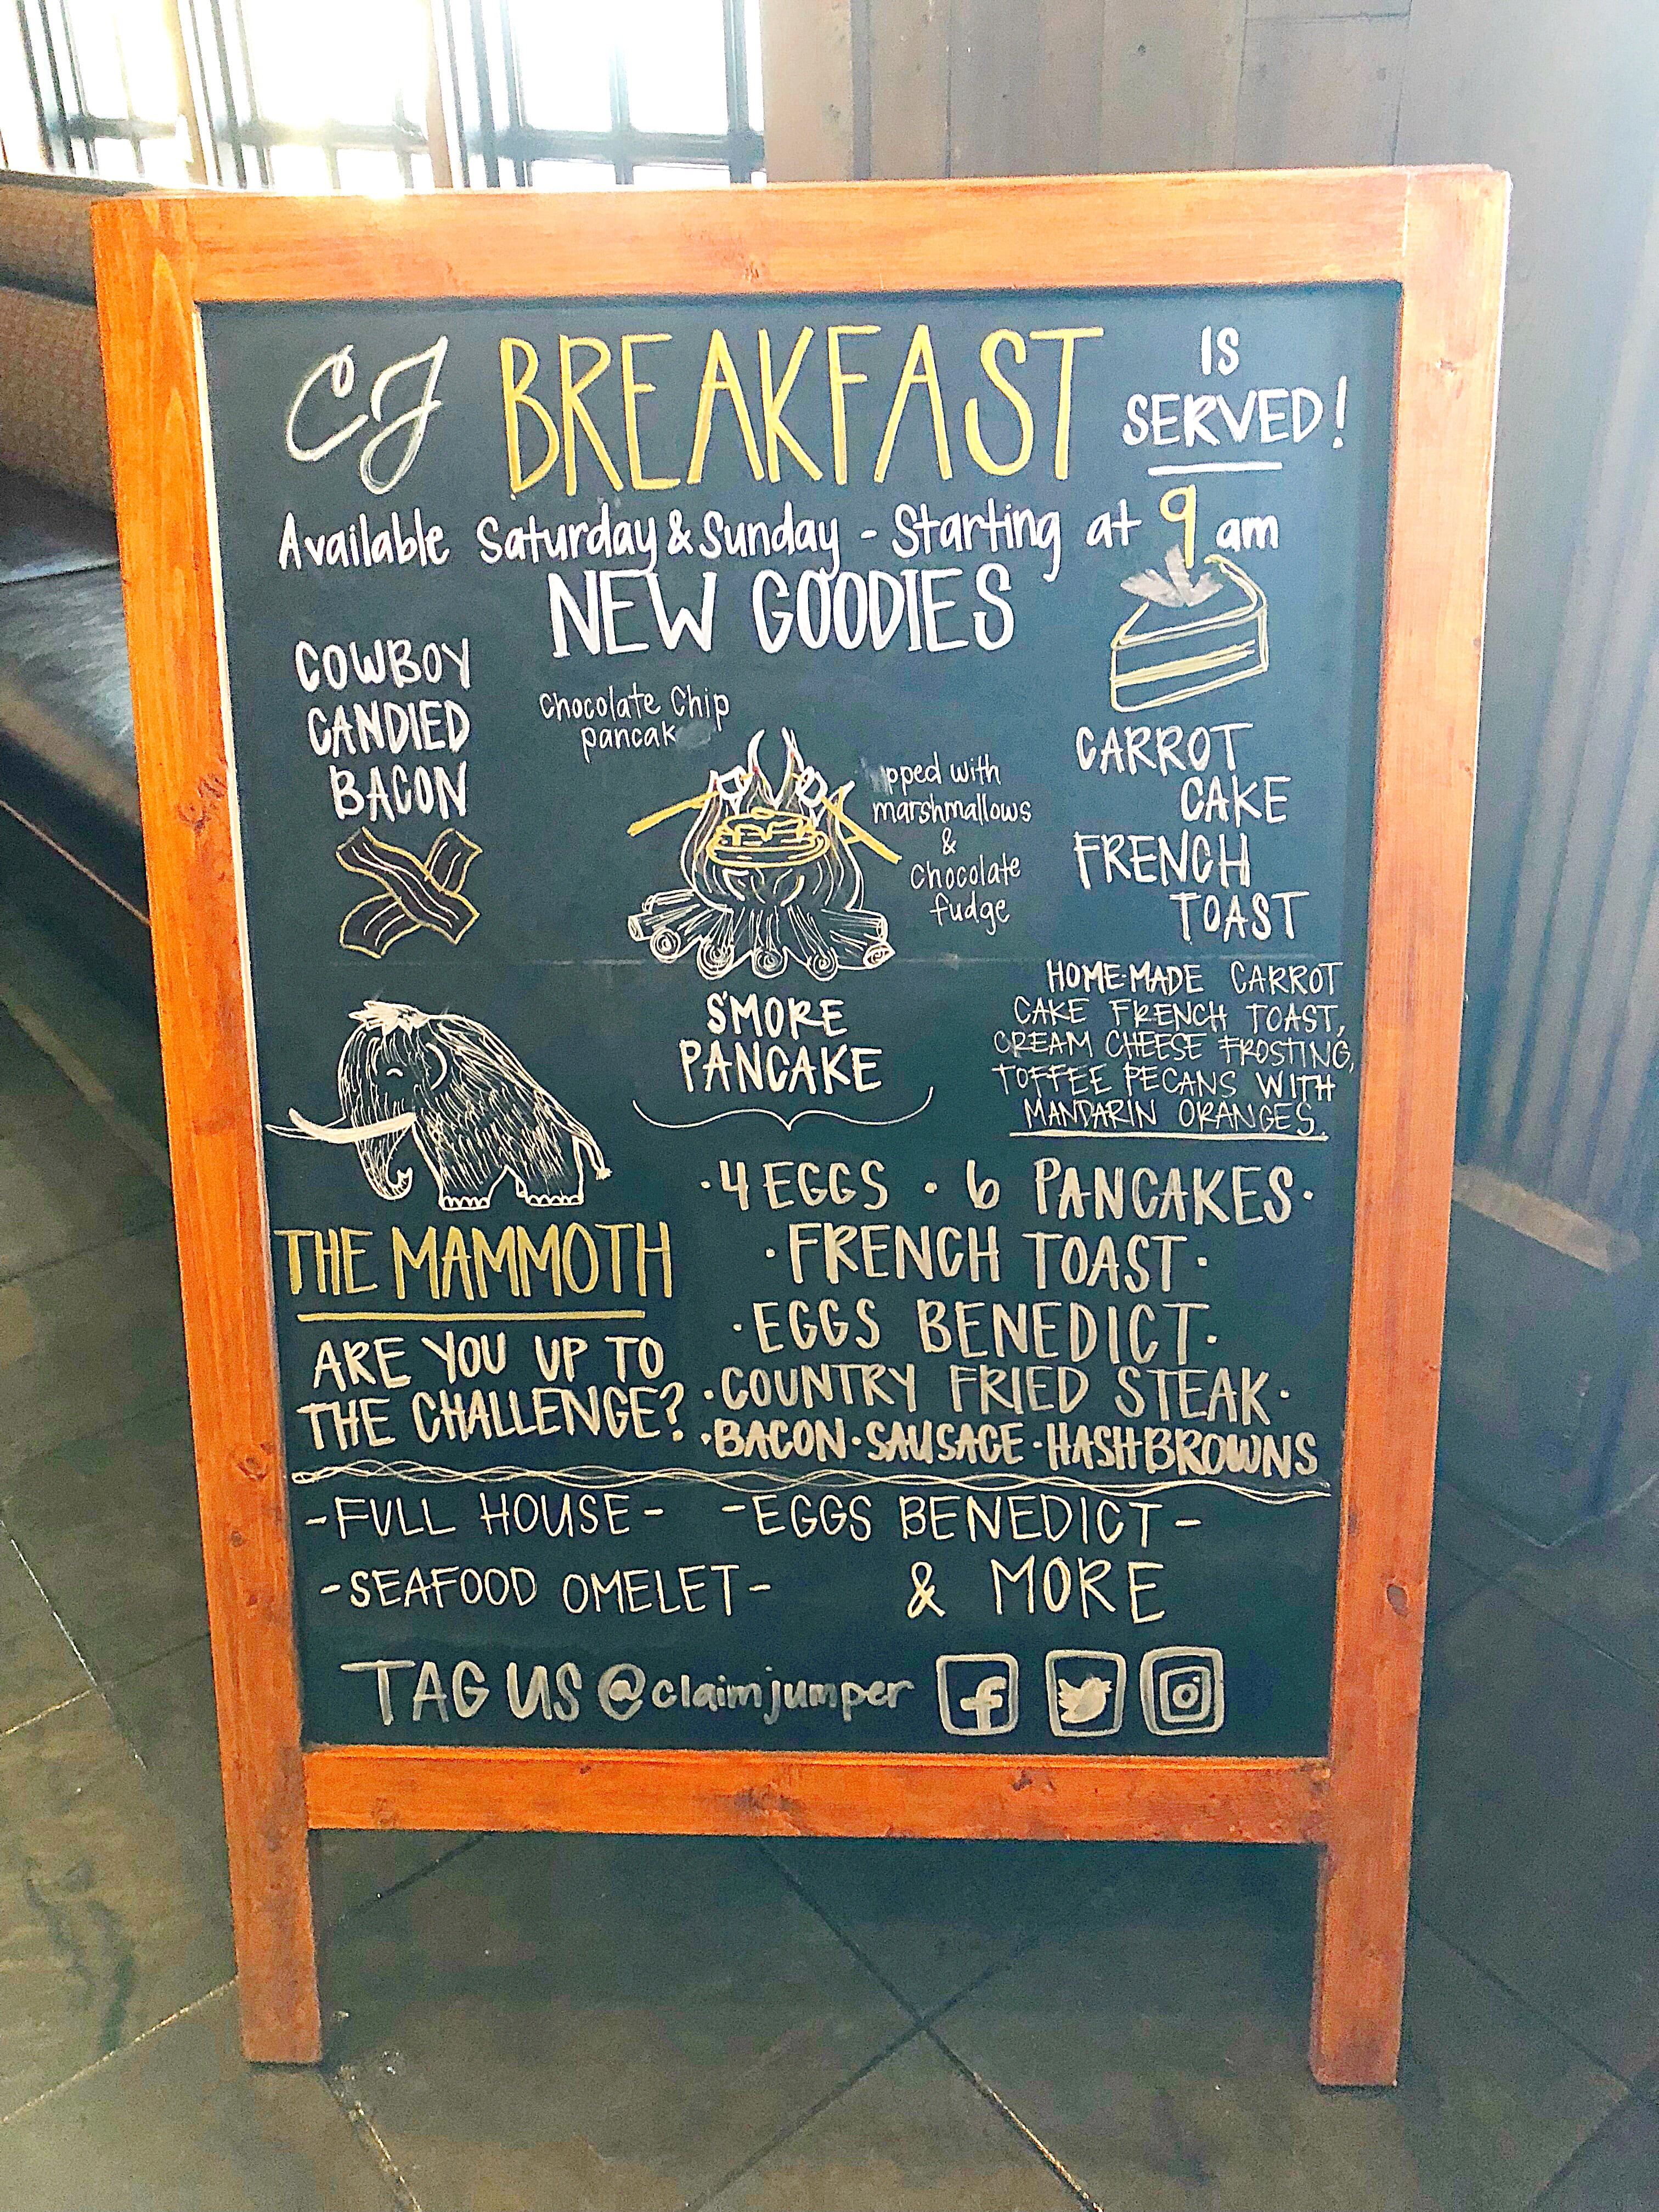 CJ BREAKFAST IS SERVED!
Available Saturday & Sunday - Starting at 9 am
NEW GOODIES
COWBOY
CANDIED
BACON
Chocolate Chip
pancak
pped with
marshmallows
&
Chocolate
fudge
S'MORE
PANCAKE
CARROT
CAKE
FRENCH
TOAST
HOME-MADE CARROT
CAKE FRENCH TOAST,
CREAM CHEESE FROSTING,
TOFFEE PECANS WITH
MANDARIN ORANGES.
THE MAMMOTH
ARE YOU UP TO
THE CHALLENGE?
·4 EGGS · 6 PANCAKES·
·FRENCH TOAST·
·EGGS BENEDICT·
·COUNTRY FRIED STEAK·
·BACON·SAUSAGE·HASHBROWNS
-FULL HOUSE- -EGGS BENEDICT-
-SEAFOOD OMELET- & MORE
TAG US @claimjumper